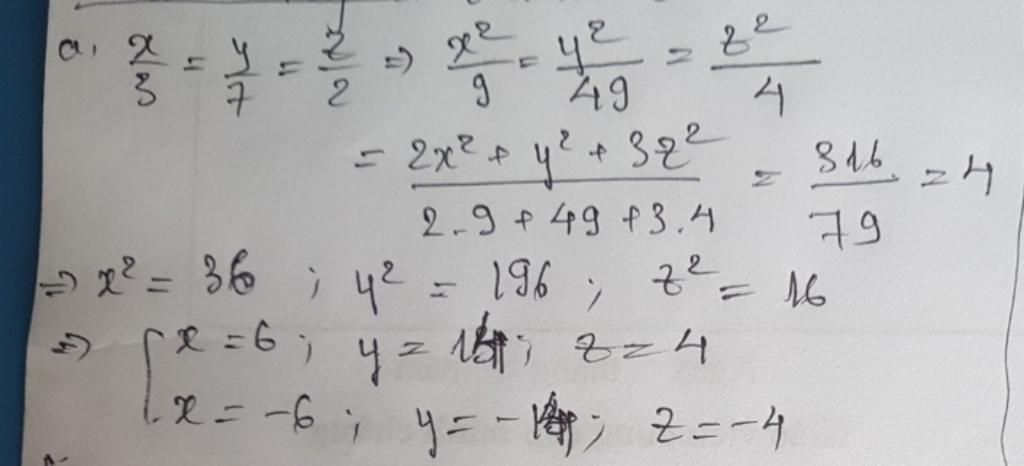 a, x/3 = y/7 = z/2 => x²/9 = y²/49 = z²/4
= (2x² + y² + 3z²)/(2.9 + 49 + 3.4) = 316/79 = 4
=> x² = 36 ; y² = 196 ; z² = 16
=> { x = 6 ; y = 14 ; z = 4
x = -6 ; y = -14 ; z = -4